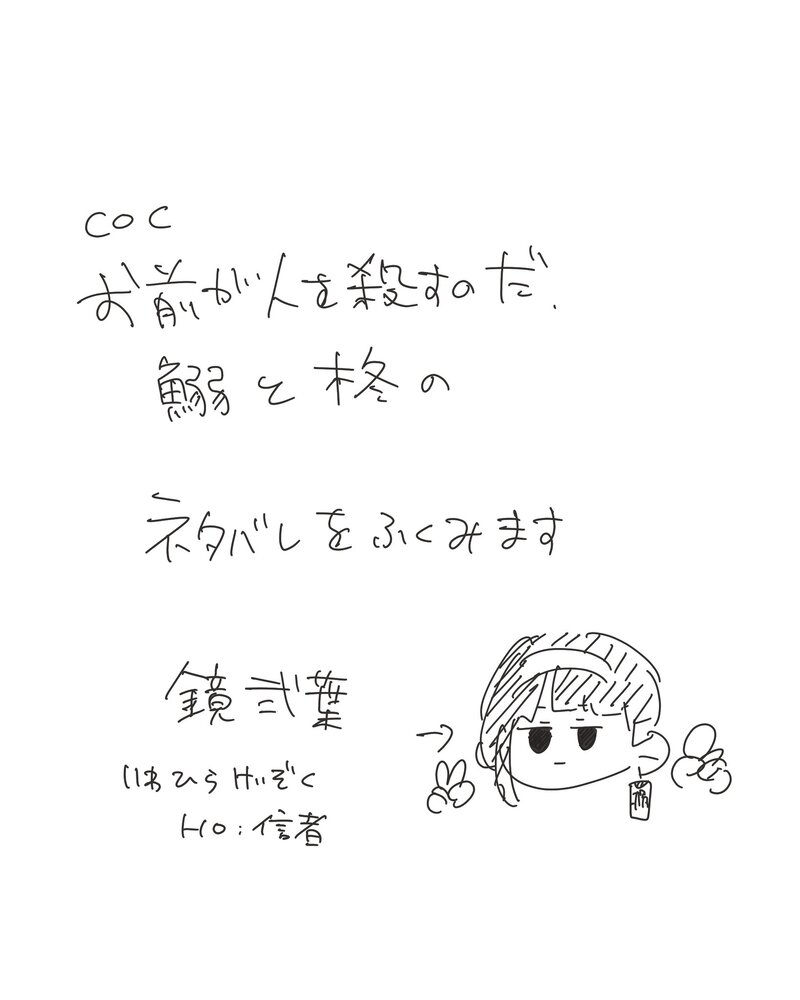 COC
お前が人を殺すのだ.
鰯と柊の
ネタバレをふくみます
鏡弐葉
→
はひらけいぞく
HO:信者